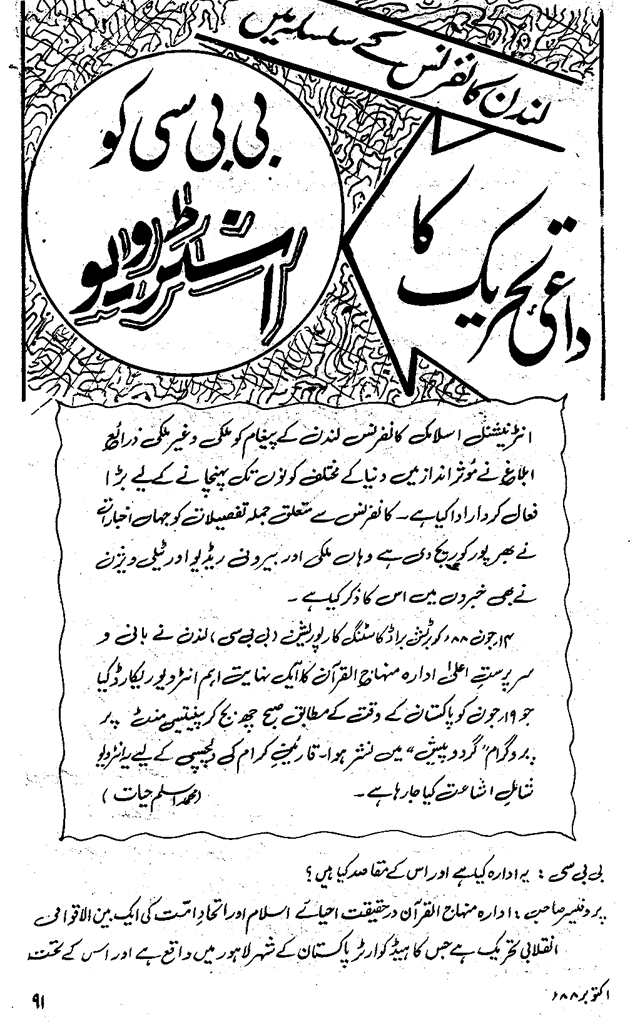 لندن کانفرنس کے سلسلہ میں
داعئ تحریک کا
بی بی سی کو
انٹرویو
انٹرنیشنل اسلامک کانفرنس لندن کے پیغام کو ملکی وغیر ملکی ذرائع
ابلاغ نے مؤثر انداز میں دنیا کے مختلف کونوں تک پہنچانے کے لیے بڑا
فعال کردار ادا کیا ہے۔ کانفرنس سے متعلق جملہ تفصیلات کو جہاں اخبارات
نے بھرپور کوریج دی ہے وہاں ملکی اور بیرونی ریڈیو اور ٹیلی ویژن
نے بھی خبروں میں اس کا ذکر کیا ہے ۔
۱۴ جون ۸۸ء کو برٹش براڈ کاسٹنگ کارپوریشن (بی بی سی) لندن نے بانی و
سرپرست اعلیٰ ادارہ منہاج القرآن کا ایک نہایت اہم انٹرویو ریکارڈ کیا
جو ۱۹ جون کو پاکستان کے وقت کے مطابق صبح چھ بج کر پینتیس منٹ پر
پروگرام "گرد و پیش" میں نشر ہوا۔ قارئین کرام کی دلچسپی کے لیے یہ انٹرویو
شامل اشاعت کیا جا رہا ہے ۔ (محمد اسلم حیات)
بی بی سی : یہ ادارہ کیا ہے اور اس کے مقاصد کیا ہیں ؟
پروفیسر صاحب : ادارہ منہاج القرآن درحقیقت احیائے اسلام اور اتحاد امت کی ایک بین الاقوامی
انقلابی تحریک ہے جس کا ہیڈ کوارٹر پاکستان کے شہر لاہور میں واقع ہے اور اس کے تحت
اکتوبر ۸۸ء
۹۱